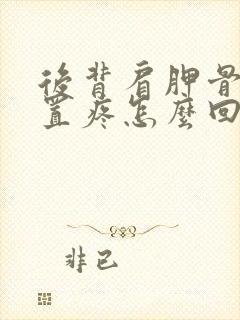 後背肩胛骨
置疼怎麼回
非已